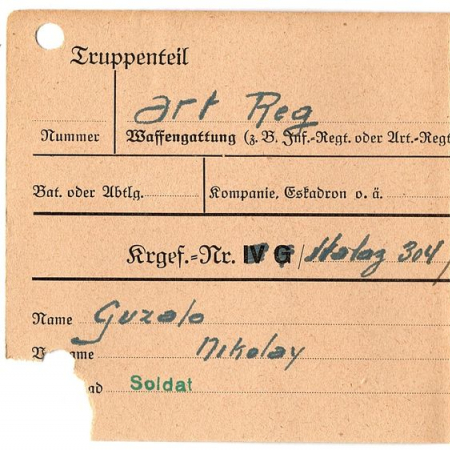 Truppenteil
Art Reg
Nummer Waffengattung (z. B. Inf.-Regt. oder Art.-Regt
Bat. oder Abtlg. Kompanie, Eskadron o. ä.
Krgef.-Nr. IV G / Stalag 304/
Name Guzalo
V me Nikolay
ad Soldat